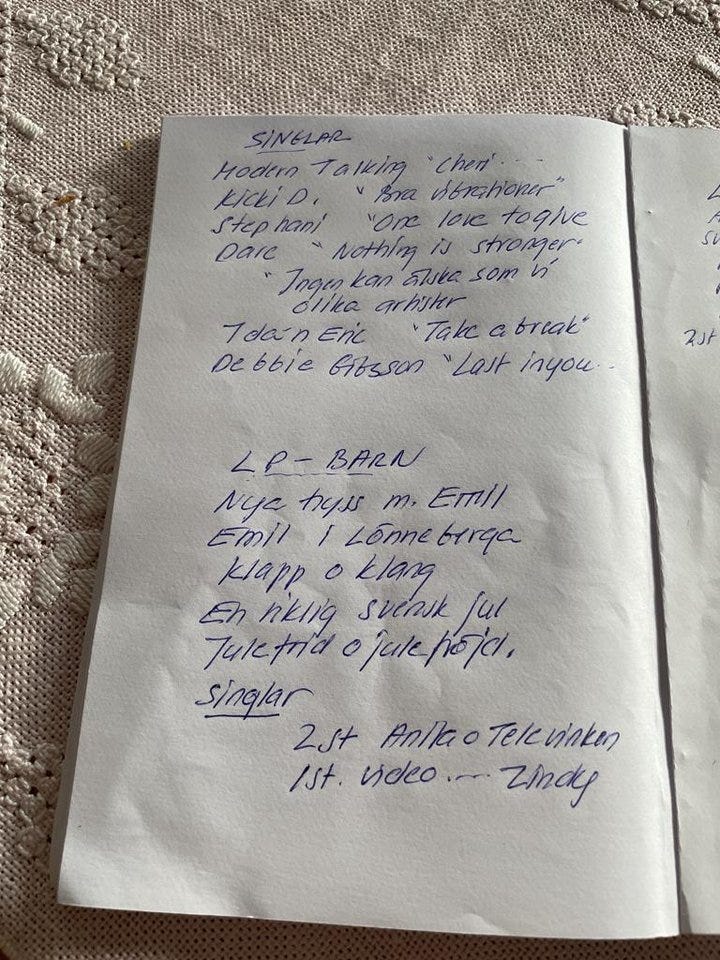 SINGLAR
Modern Talking "Cheri....
Kicki D. "Bra vibrationer"
Stephani "One love to give
Dare "Nothing is stronger"
"Ingen kan älska som vi
olika artister
"Take a break"
Debbie Gibsson "Last in you..
LP-BARN
Nya hyss m. Emil
Emil i Lönneberga
Klapp o klang
En riktig svensk jul
Julefrid o julefröjd.
Singlar
2st Anita o Televinken
1st. video.... Zindy
2st